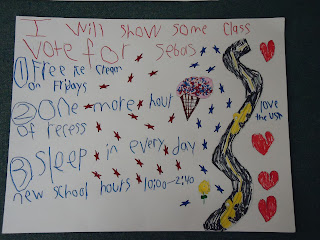 I Will show some Class
Vote for Sebas
1 Free ice Cream
on Fridays
2 One more hour
of recess
3 Sleep in every day
new school hours 10:00-2:40
love
the USA